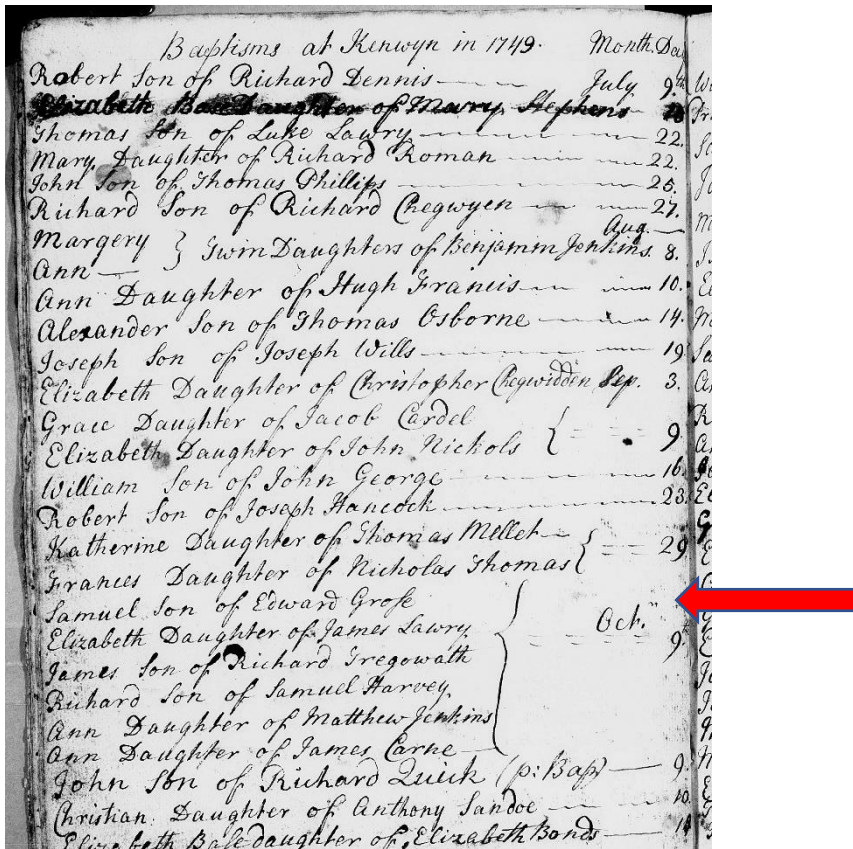 Baptisms at Kenwyn in 1749. Month. Day
Robert Son of Richard Dennis July 9th
Elizabeth Base Daughter of Mary Stephens
Thomas Son of Luke Lawry 22.
Mary Daughter of Richard Roman 22.
John Son of Thomas Phillips 25.
Richard Son of Richard Chegwyen 27.
Aug.
Margery } Twin Daughters of Benjamin Jenkins. 8.
Ann
Ann Daughter of Hugh Francis 10.
Alexander Son of Thomas Osborne 14.
Joseph Son of Joseph Wills 19
Elizabeth Daughter of Christopher Chegwidden Sep. 3.
Grace Daughter of Jacob Cardel
Elizabeth Daughter of John Nichols { 9
William Son of John George 16.
Robert Son of Joseph Hancock 23.
Katherine Daughter of Thomas Mellet
Frances Daughter of Nicholas Thomas { 29
Samuel Son of Edward Grose
Oct.
Elizabeth Daughter of James Lawry 9.
James Son of Richard Tregowath
Richard Son of Samuel Harvey
Ann Daughter of Matthew Jenkins
Ann Daughter of James Carne
John Son of Richard Quick (p: Bap) 9.
Christian Daughter of Anthony Sandoe 10.
Elizabeth Base daughter of Elizabeth Bonds